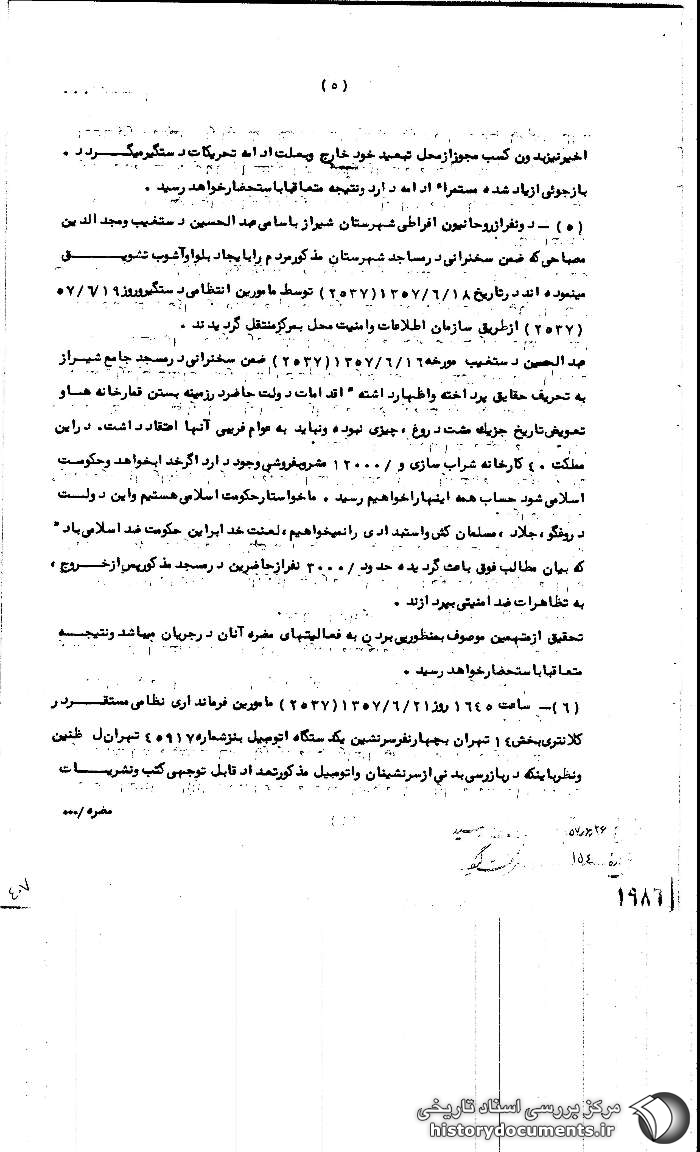 (٥)
...
اخیر نیز بدون کسب مجوز از محل تبعید خود خارج و بعلت ادامه تحریکات دستگیر میگردد .
بازجوئی از یاد شده مستمراً ادامه دارد و نتیجه متعاقبا باستحضار خواهد رسید .
(٥) – دو نفر از روحانیون افراطی شهرستان شیراز باسامی عبدالحسین دستغیب و مجدالدین
مصباحی که ضمن سخنرانی در مساجد شهرستان مذکور مردم را بایجاد بلوا و آشوب تشویق
مینموده اند در تاریخ ١٣٥٧/٦/١٨ (٢٥٣٧) توسط مامورین انتظامی دستگیر و روز ٥٧/٦/١٩
(٢٥٣٧) از طریق سازمان اطلاعات و امنیت محل بمرکز منتقل گردیدند .
عبدالحسین دستغیب مورخه ١٣٥٧/٦/١٦ (٢٥٣٧) ضمن سخنرانی در مسجد جامع شیراز
به تحریف حقایق پرداخته و اظهار داشته " اقدامات دولت حاضر در زمینه بستن قمارخانه ها و
تعویض تاریخ جز یک مشت دروغ ، چیزی نبوده و نباید به عوام فریبی آنها اعتقاد داشت . در این
مملکت ٤٠ کارخانه شراب سازی و /١٢٠٠٠ مشروبفروشی وجود دارد اگر خدا بخواهد و حکومت
اسلامی شود حساب همه اینها را خواهیم رسید . ما خواستار حکومت اسلامی هستیم و این دولت
دروغگو ، جلاد ، مسلمان کش و استبدادی را نمیخواهیم ، لعنت خدا بر این حکومت ضد اسلامی باد "
که بیان مطالب فوق باعث گردیده حدود /٣٠٠٠ نفر از حاضرین در مسجد مذکور پس از خروج ،
به تظاهرات ضد امنیتی بپردازند .
تحقیق از متهمین موصوف بمنظور پی بردن به فعالیتهای مضره آنان در جریان میباشد و نتیجه
متعاقبا باستحضار خواهد رسید .
(٦) – ساعت ١٦٤٥ روز ١٣٥٧/٦/٢١ (٢٥٣٧) مامورین فرمانداری نظامی مستقر در
کلانتری بخش ١٤ تهران بچهار نفر سرنشین یکدستگاه اتومبیل بنز شماره ٤٥٩١٧ تهران ل ظنین
و نظر باینکه در بازرسی بدنی از سرنشینان و اتومبیل مذکور تعداد قابل توجهی کتب و نشریات
مضره /...
٢٦
٥٧
١٥٤
١٩٨٦
٤٠٧
مرکز بررسی اسناد تاریخی
historydocuments.ir